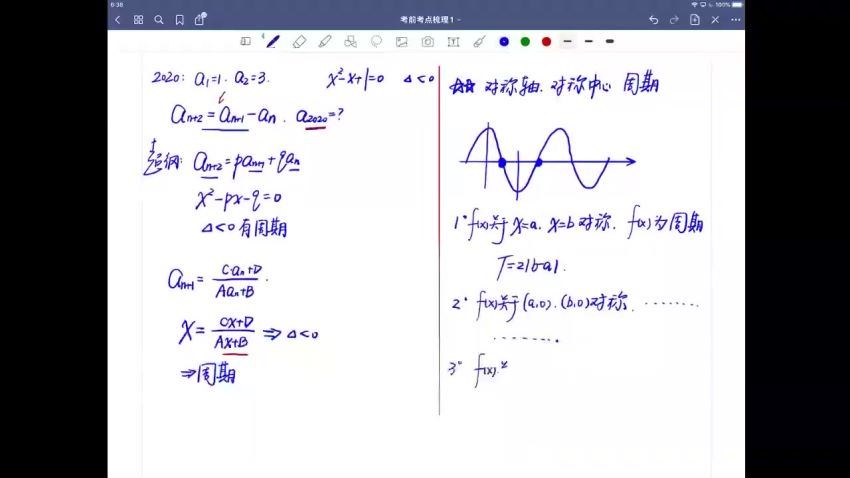 6:38
100%
考前考点梳理1
2020: a₁=1. a₂=3. x²-x+1=0 Δ<0
aₙ₊₂=aₙ₊₁-aₙ. a₂₀₂₀=?
超纲: aₙ₊₂=paₙ₊₁+qaₙ
x²-px-q=0
Δ<0 有周期
aₙ₊₁=(Caₙ+D)/(Aaₙ+B).
x=(Cx+D)/(Ax+B) ⇒ Δ<0
⇒周期
☆☆ 对称轴.对称中心 周期
1° f(x)关于x=a. x=b对称. f(x)为周期
T=2|b-a|.
2° f(x)关于(a,0).(b,0)对称. ········
········.
3° f(x).